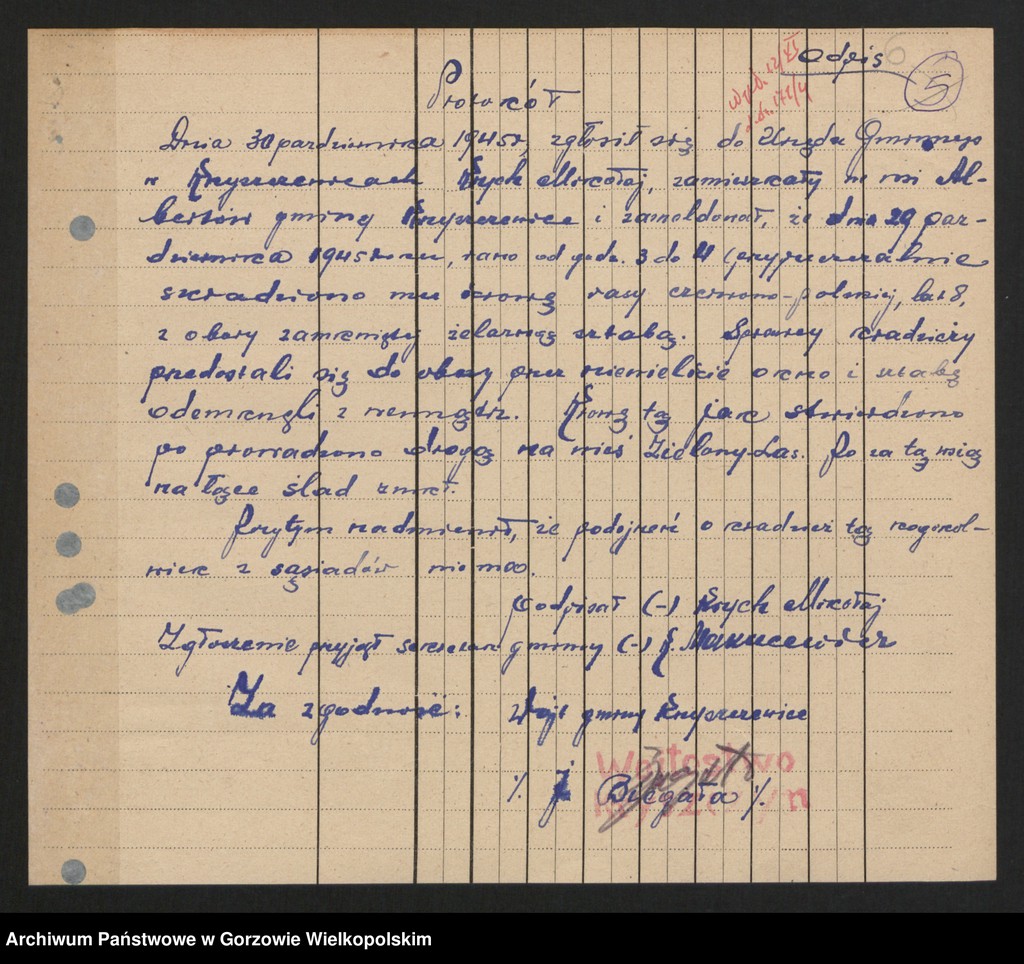 Odpis
5
Protokół
Dnia 30 października 1945 r. zgłosił się do Urzędu Gminnego
w Krzyszczewicach Krych Mikołaj, zamieszkały we wsi Al-
bertów gminy Krzyszczewice i zameldował, że dnia 29 paź-
dziernika 1945 roku, rano od godz. 3 do 4 (przypuszczalnie
skradziono mu krowę rasy czerwono-polskiej, lat 8,
z obory zamkniętej żelazną sztabą. Sprawcy kradzieży
przedostali się do obory przez niewielkie okno i sztabę
odemknęli z wewnątrz. Krowę tę jak stwierdzono
po prowadzono drogą na wieś Zielony-Las. Po za tą wsią
na łące ślad znikł.
Przytym nadmienił, że podojrzeń o kradzież tę kogokol-
wiek z sąsiadów niema.
Podpisał (-) Krych Mikołaj
Zgłoszenie przyjął sekretarz gminny (-)
Za zgodność: Wójt gminy Krzyszczewice
/. J Biegała /.
Wójtostwo
Archiwum Państwowe w Gorzowie Wielkopolskim